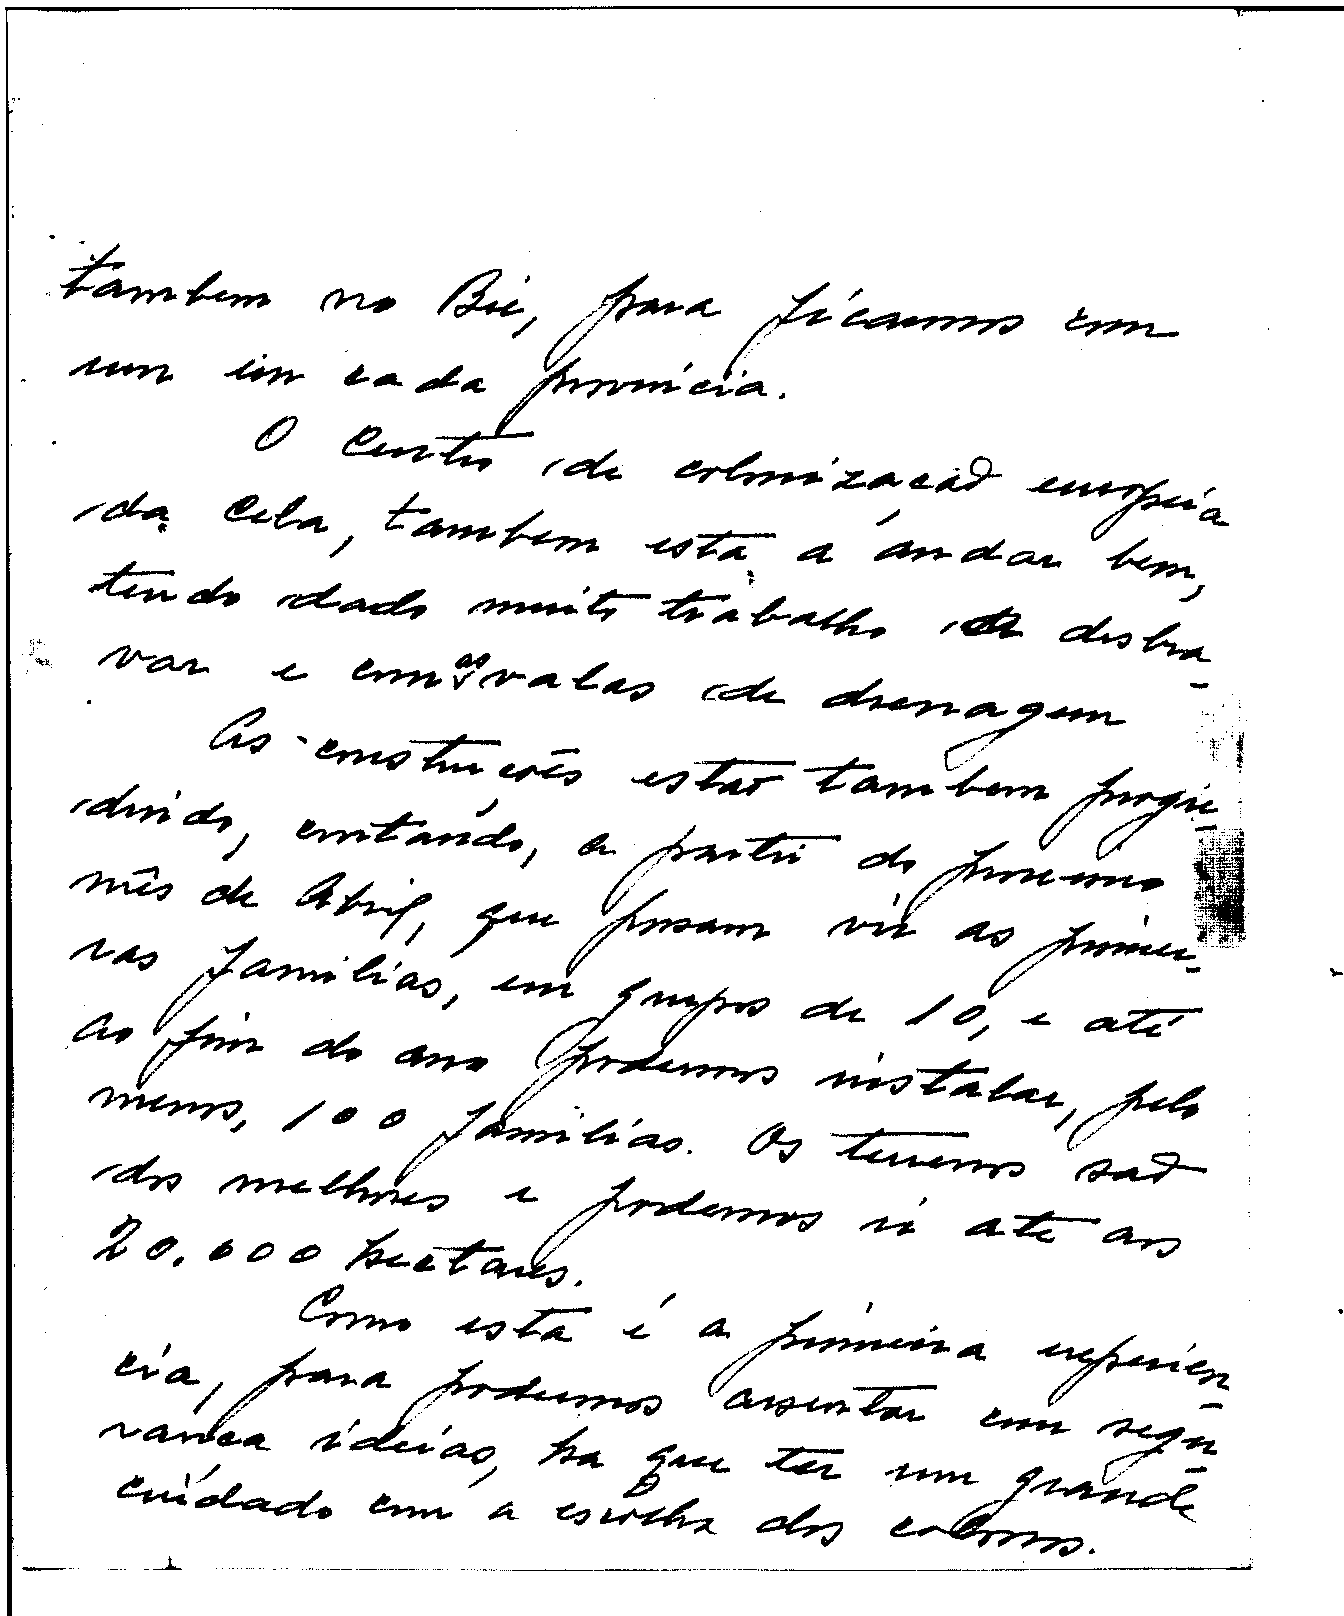 tambem no Bié, para ficarmos com
um em cada provincia.
O Centro de colonização europeia
da Cela, tambem está a andar bem,
tendo dado muito trabalho a desbra-
var e com as valas de drenagem
As construções estão tambem progre-
dindo, contando, a partir do proximo
mês de Abril, que possam vir as primei-
ras familias, em grupos de 10, e até
ao fim do ano podermos instalar, pelo
menos, 100 familias. Os terrenos são
dos melhores e podemos ir até aos
20.000 hectares.
Como esta é a primeira experien-
cia, para podermos assentar com segu-
rança ideias, ha que ter um grande
cuidado com a escolha dos colonos.